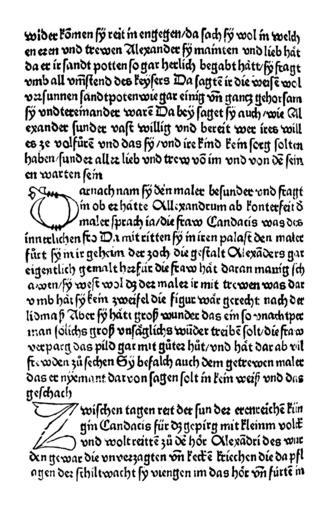 wider kōmen sy reit in engegen/da sach sy wol in welch
en eren und trewen Alexander sy mainten und lieb hāt
da er ir sandt potten so gar herlich begabt hātt/sy fragt
umb all umstend des keysers Da sagtē ir die weisē wol
versunnen sandtpoten wie gar einig vn̄ gantz gehorsam
sy undtereinander warē Da bey saget sy auch/wie Al
exander sunder vast willig und bereit wer ires will
es ze volfürē und das sy/und ire kind kein sorg solten
haben/sunder all er lieb und trew vō im und von dē sein
en warten sein
Darnach nam sy den maler besunder und fragt
in ob er hātte Allexandrum ab konterfeit d
maler sprach ia/die fraw Candacis was des
innerlichen fro Da mit ritten sy in iren palast den maler
fürt sy in ir geheim der zoch die gestalt Alexāders gar
eigentlich gemalt herfür die fraw hāt daran manig sch
awen/sy west wol dz dez maler ir mit trewen was dar
umb hāt sy kein zweifel die figur wār gerecht nach der
lidmaß Aber sy hātt groß wunder das ein so
man solichs groß unsāglichs wūder treiben solt/die fraw
verparg das pild gar mit gūter hūt/und hāt dar ab vil
frewden zū sechen Sy befalch auch dem getrewen maler
das er nyemant darvon sagen solt in kein weiß und das
geschach
Zwischen tagen reit der sun der erenreichē kün
gin Candacis für dz gepirg mit kleinm volck
und wolt reitē zū dē hör Alexādri des wur
den gewar die unverzagten vn̄ keckē kriechen die da pfl
agen der schiltwacht sy viengen im das hör vn̄ fürtē in